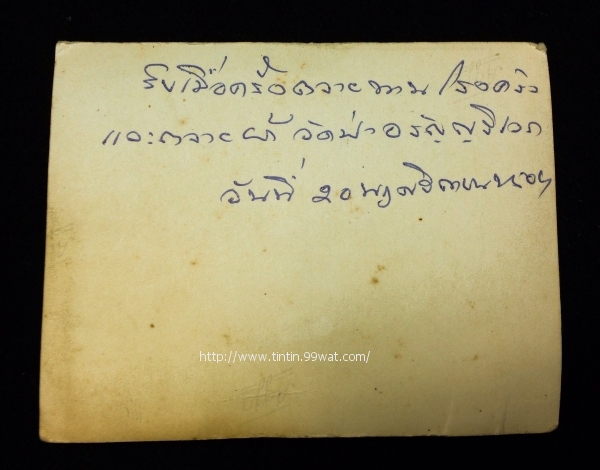 รับเมื่อครั้งถวายทาน โรงครัว
และถวายผ้า วัดป่าอรัญญวิเวก
วันที่ ๒๐ พฤศจิกายน
http://www.tintin.99wat.com/